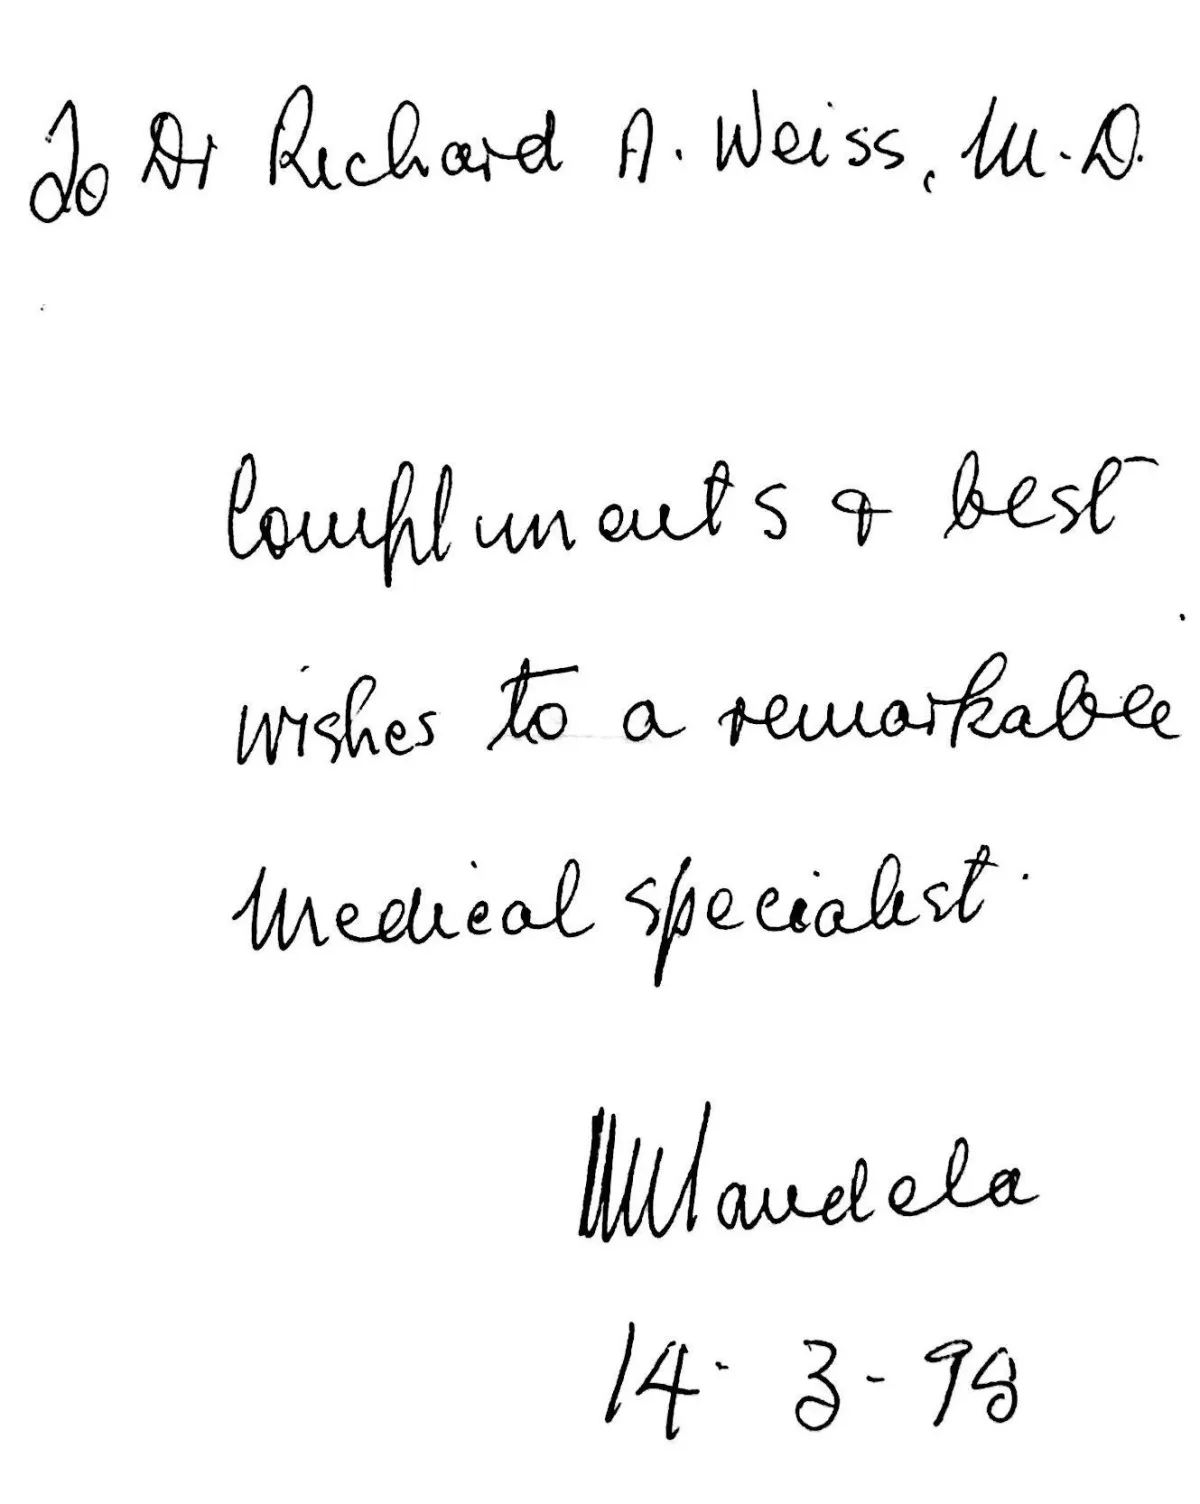 To Dr Richard A. Weiss, M.D.
Compliments & best
wishes to a remarkable
medical specialist.
NMandela
14-3-98